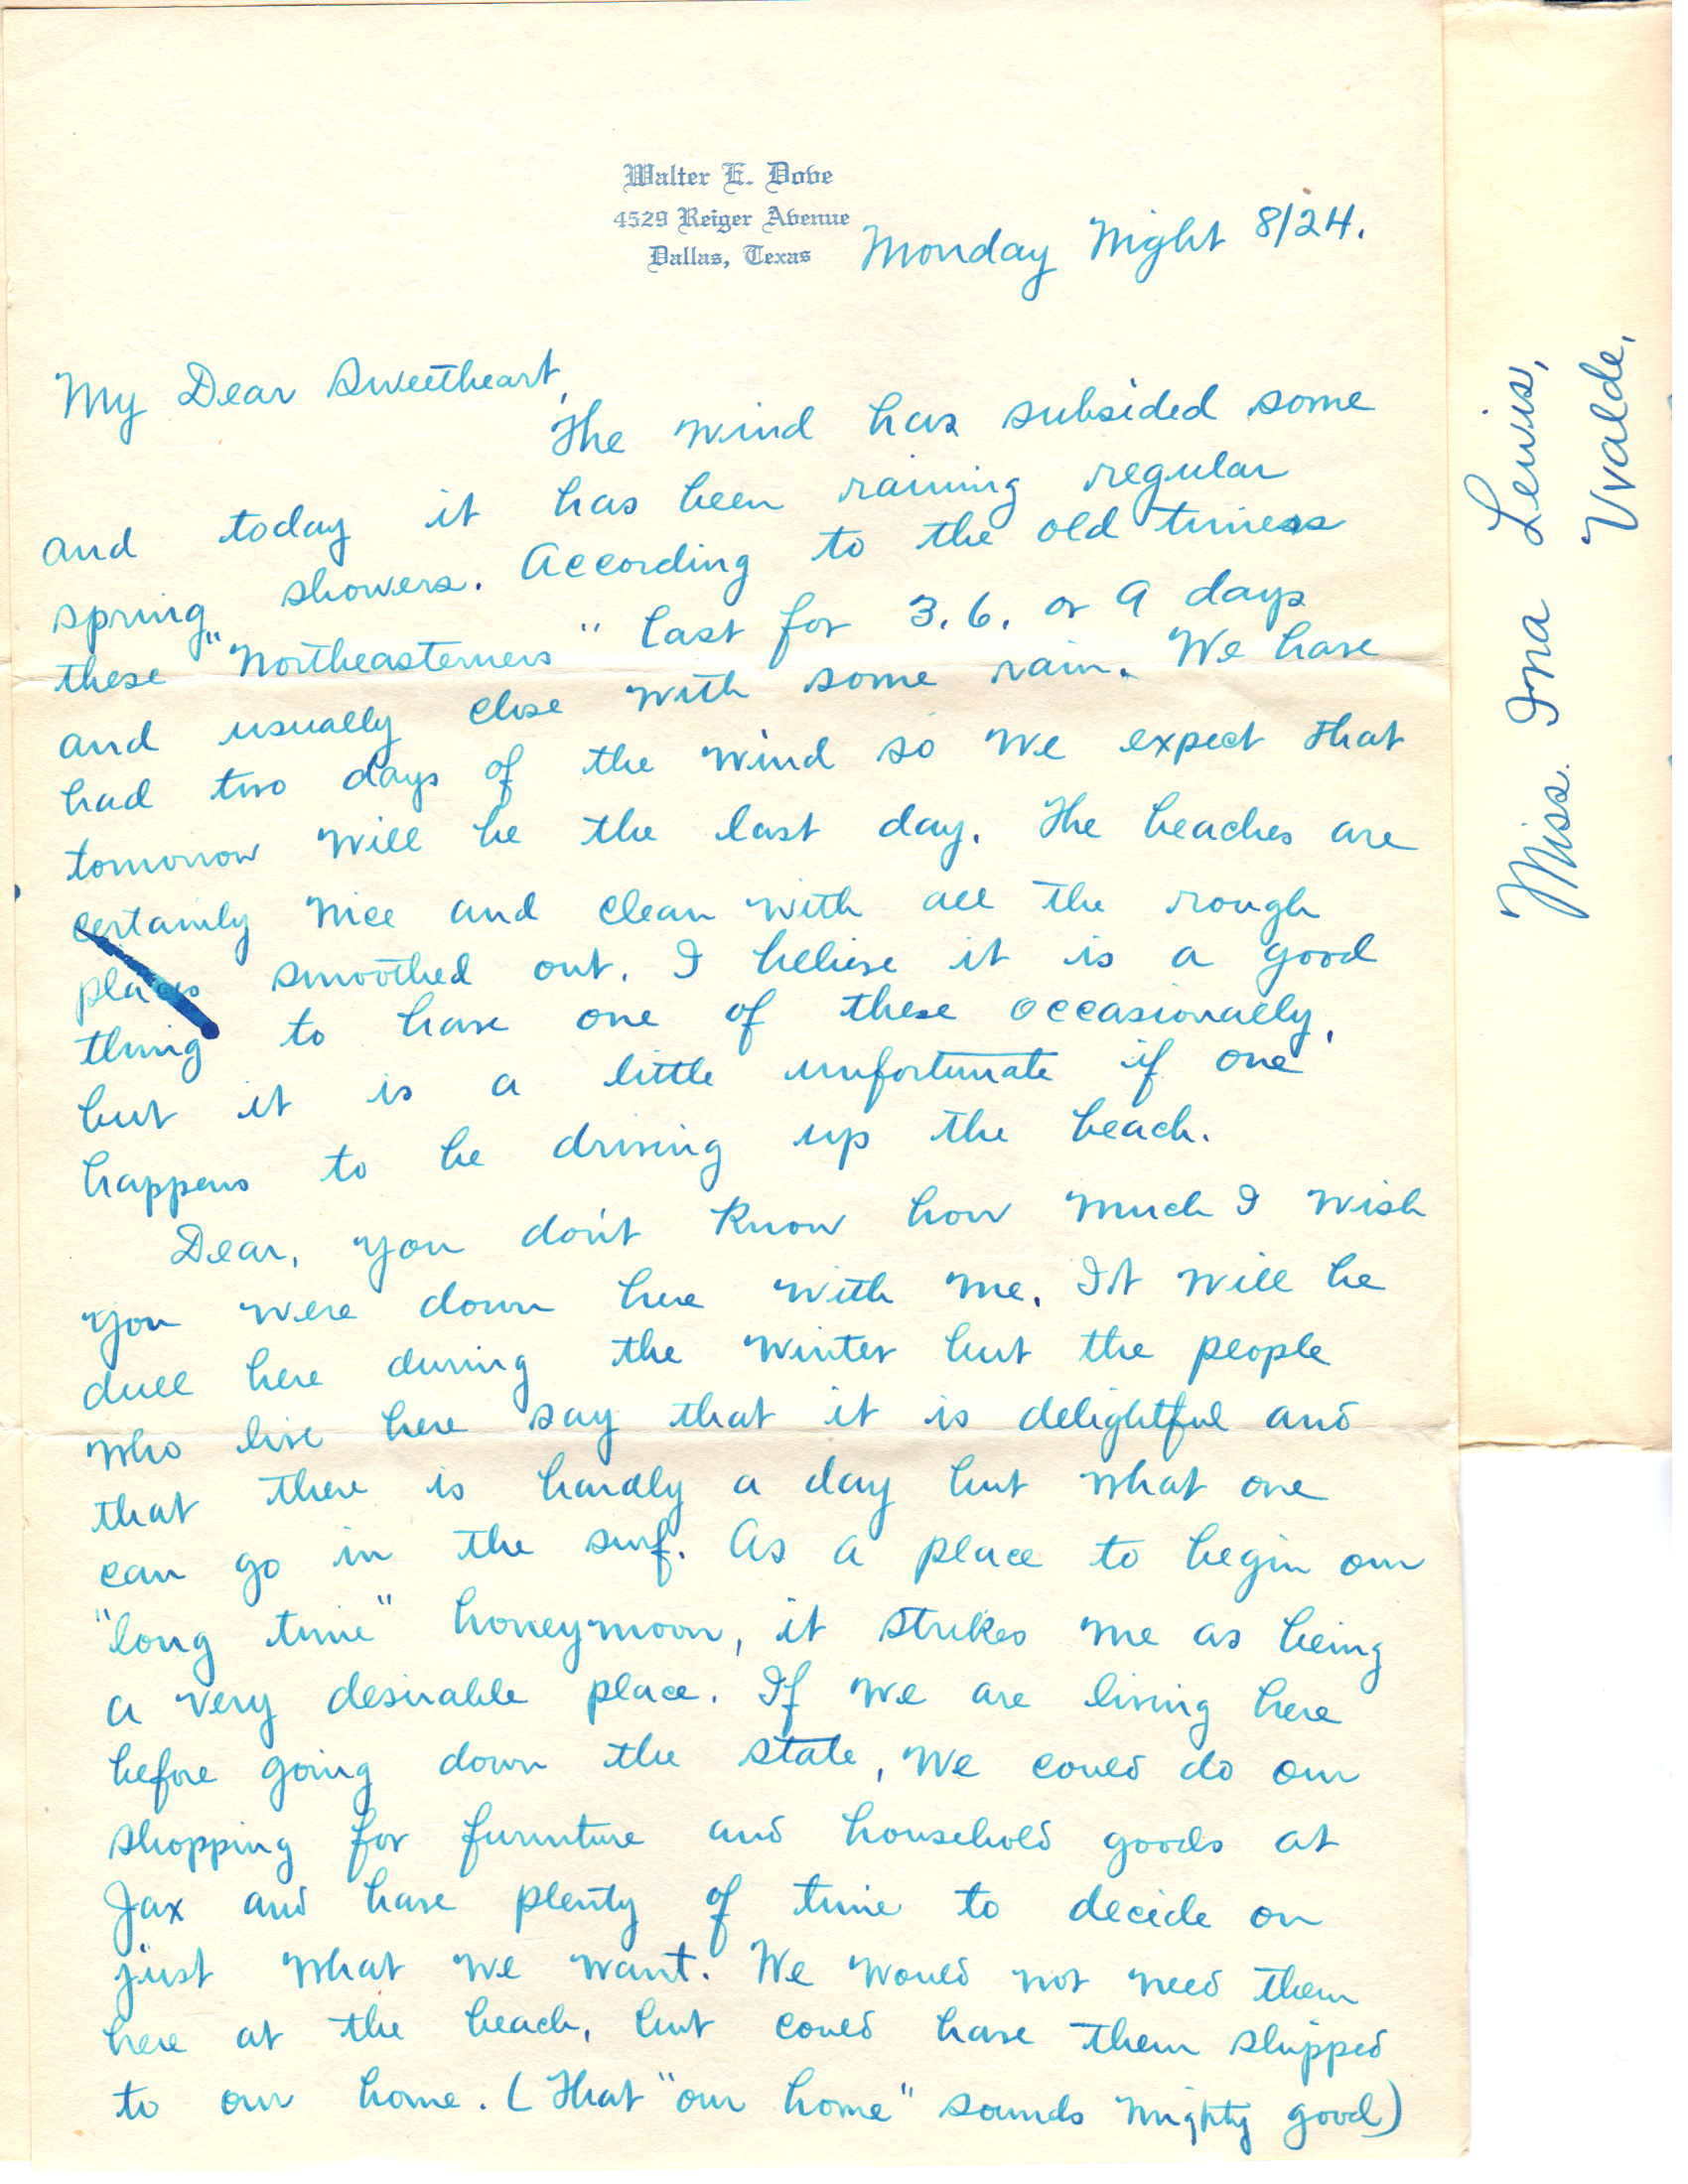 Walter E. Dove
4529 Reiger Avenue
Dallas, Texas
Monday Night 8/24.
My Dear Sweetheart,
The wind has subsided some
and today it has been raining regular
spring showers. According to the old timess
these "Northeasterners" last for 3, 6, or 9 days
and usually close with some rain. We have
had two days of the wind so we expect that
tomorrow will be the last day. The beaches are
certainly nice and clean with all the rough
places smoothed out. I believe it is a good
thing to have one of these occasionally,
but it is a little unfortunate if one
happens to be driving up the beach.
Dear, you don't know how much I wish
you were down here with me. It will be
dull here during the winter but the people
who live here say that it is delightful and
that there is hardly a day but what one
can go in the surf. As a place to begin our
"long time" honeymoon, it strikes me as being
a very desirable place. If we are living here
before going down the state, we could do our
shopping for furniture and household goods at
Jax and have plenty of time to decide on
just what we want. We would not need them
here at the beach, but could have them shipped
to our home. (That "our home" sounds mighty good)
Miss. Ina Lewis,
Uvalde,